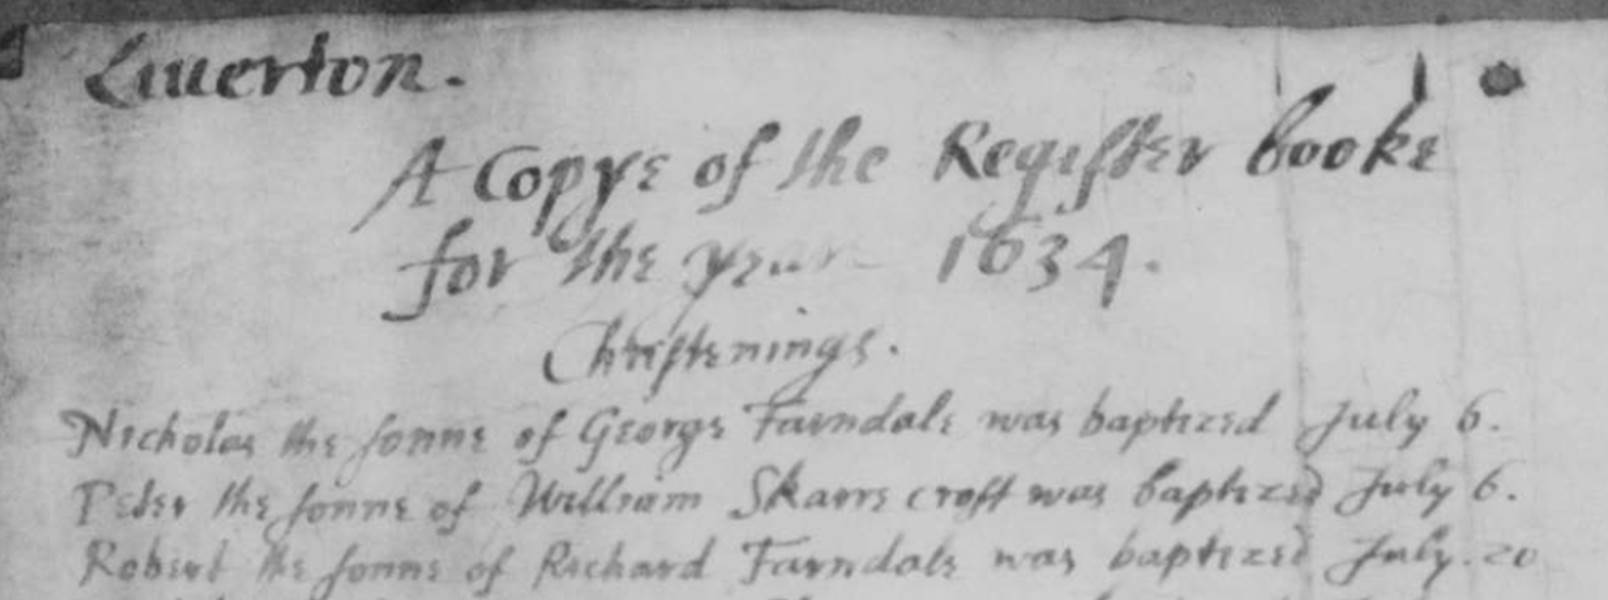 Liuerton.
A Copye of the Register booke
for the year 1634.
Christenings.
Nicholas the sonne of George Farndale was baptized July 6.
Peter the sonne of William Skarre croft was baptized July 6.
Robert the sonne of Richard Farndale was baptized July. 20